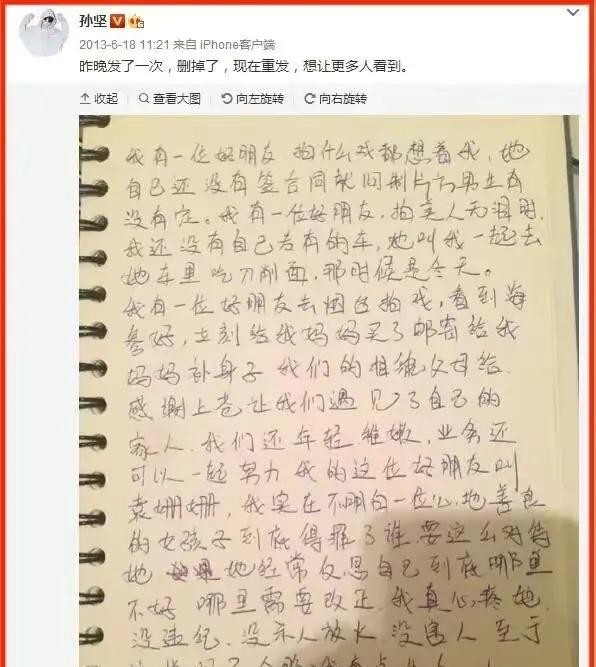 孙坚
2013-6-18 11:21 来自 iPhone客户端
昨晚发了一次，删掉了，现在重发，想让更多人看到。
收起 查看大图 向左旋转 向右旋转
我有一位好朋友 拍什么戏都想着我，她
自己还没有签合同就问制片方男生有
没有定。我有一位好朋友，拍美人无泪时，
我还没有自己占有的车，她叫我一起去
她车里吃刀削面，那时候是冬天。
我有一位好朋友去烟台拍戏，看到海
参好，立刻给我妈妈买了邮寄给我
妈妈补身子 我们的相貌父母给，
感谢上苍让我们遇见了自己的
家人，我们还年轻 稚嫩，业务还
可以一起努力 我的这位好朋友叫
袁姗姗，我实在不明白一位心地善良
的女孩子到底得罪了谁，要这么对待
她 她经常反思自己到底哪里
不好 哪里需要改正，我真心疼她，
没违纪，没杀人放火，没害人 至于